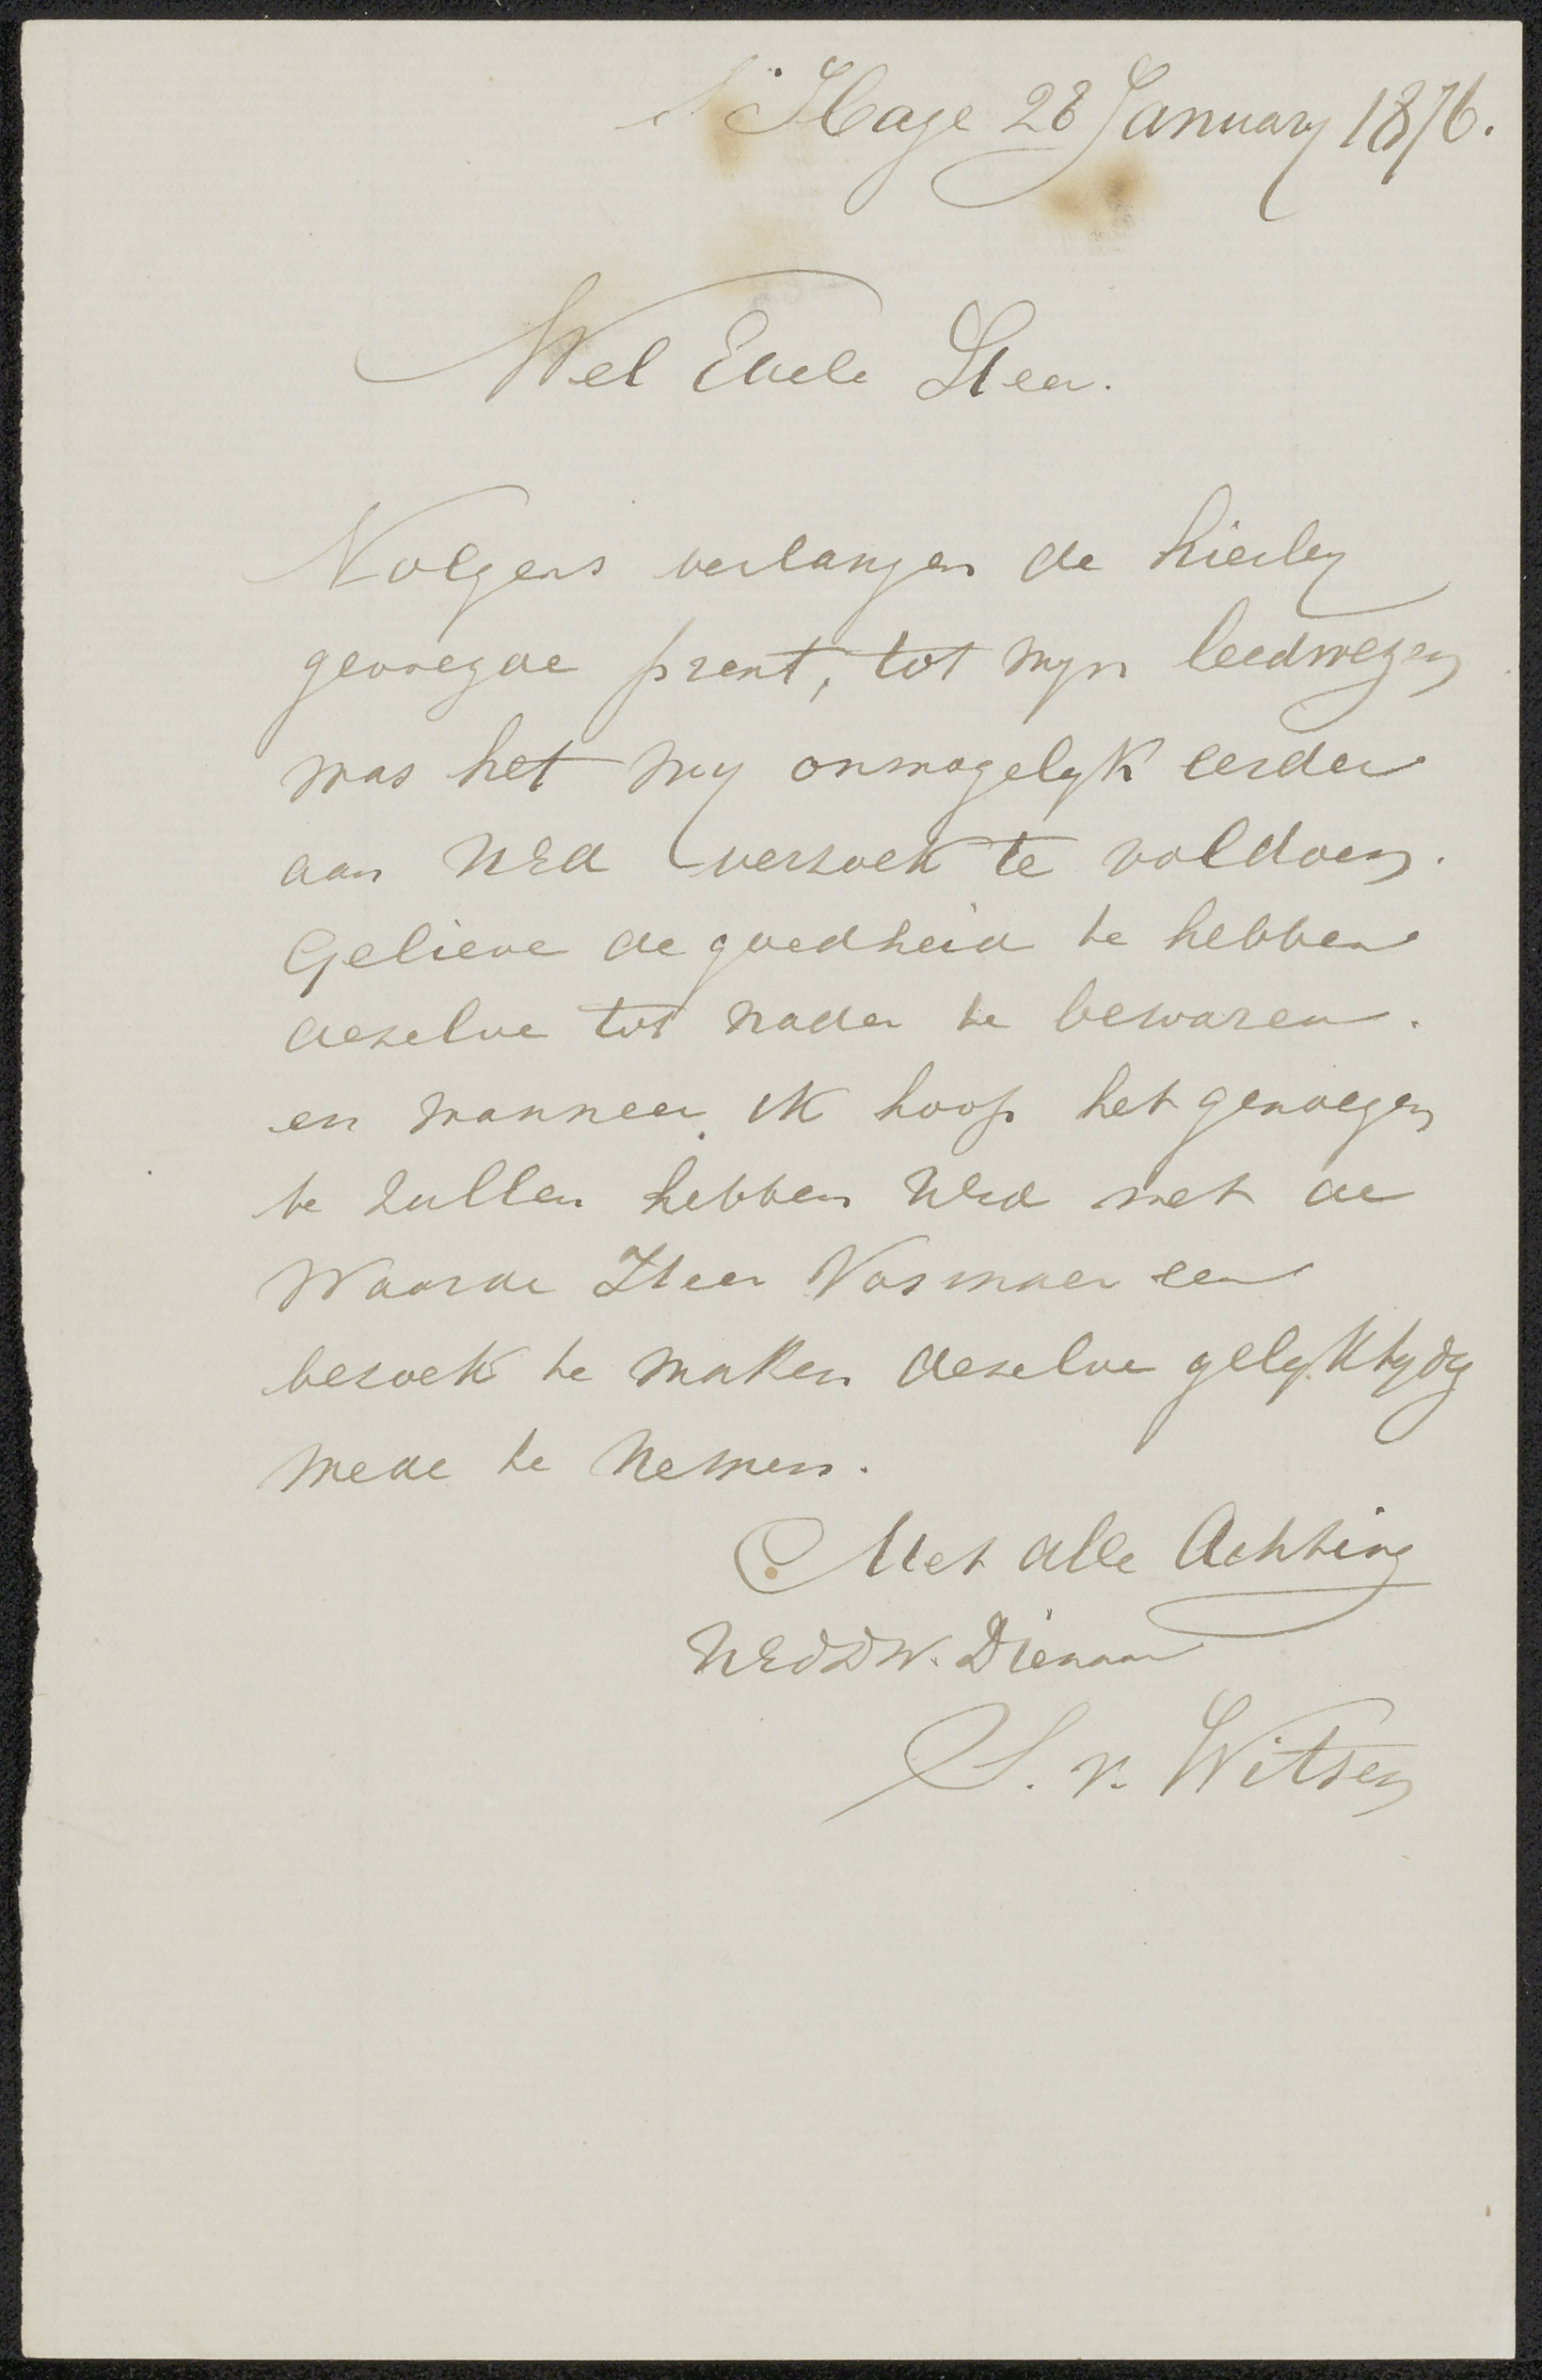 s' Hage 28 January 1876.
Wel Edele Heer.
Volgens verlangen de hierby
gevoegde prent, tot myn leedwezen
was het my onmogelyk eerder
aan UEd verzoek te voldoen.
Gelieve de goedheid te hebben
deselve tot nader te bewaren.
en wanneer ik hoop het genoegen
te zullen hebben UEd met de
Waarde Heer Vosmaer een
bezoek te maken deselve gelyktydig
mede te nemen.
Met alle Achting
UEdDW. Dienaar
S. v. Witsen